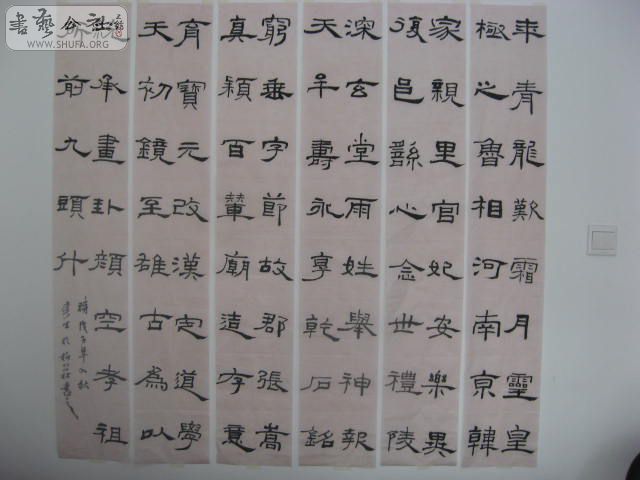 年青龍歎霜月靈皇
極之魯相河南京韓
家親里官妃安樂異
復邑繇心念世禮陵
深玄堂雨姓舉神報
天年壽永享乾石銘
窮垂字節故郡張嵩
真穎百輦廟造存意
育寶元改漢定道學
天初鏡至雒古為以
承畫卦顏空孝祖
前九頭什
時戊子年之秋
書藝公社
WWW.SHUFA.ORG